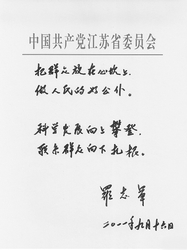 中国共产党江苏省委员会
把群众放在心坎上
做人民的好公仆。
科学发展向上攀登,
联系群众向下扎根。
罗志军
二〇一一年九月十六日